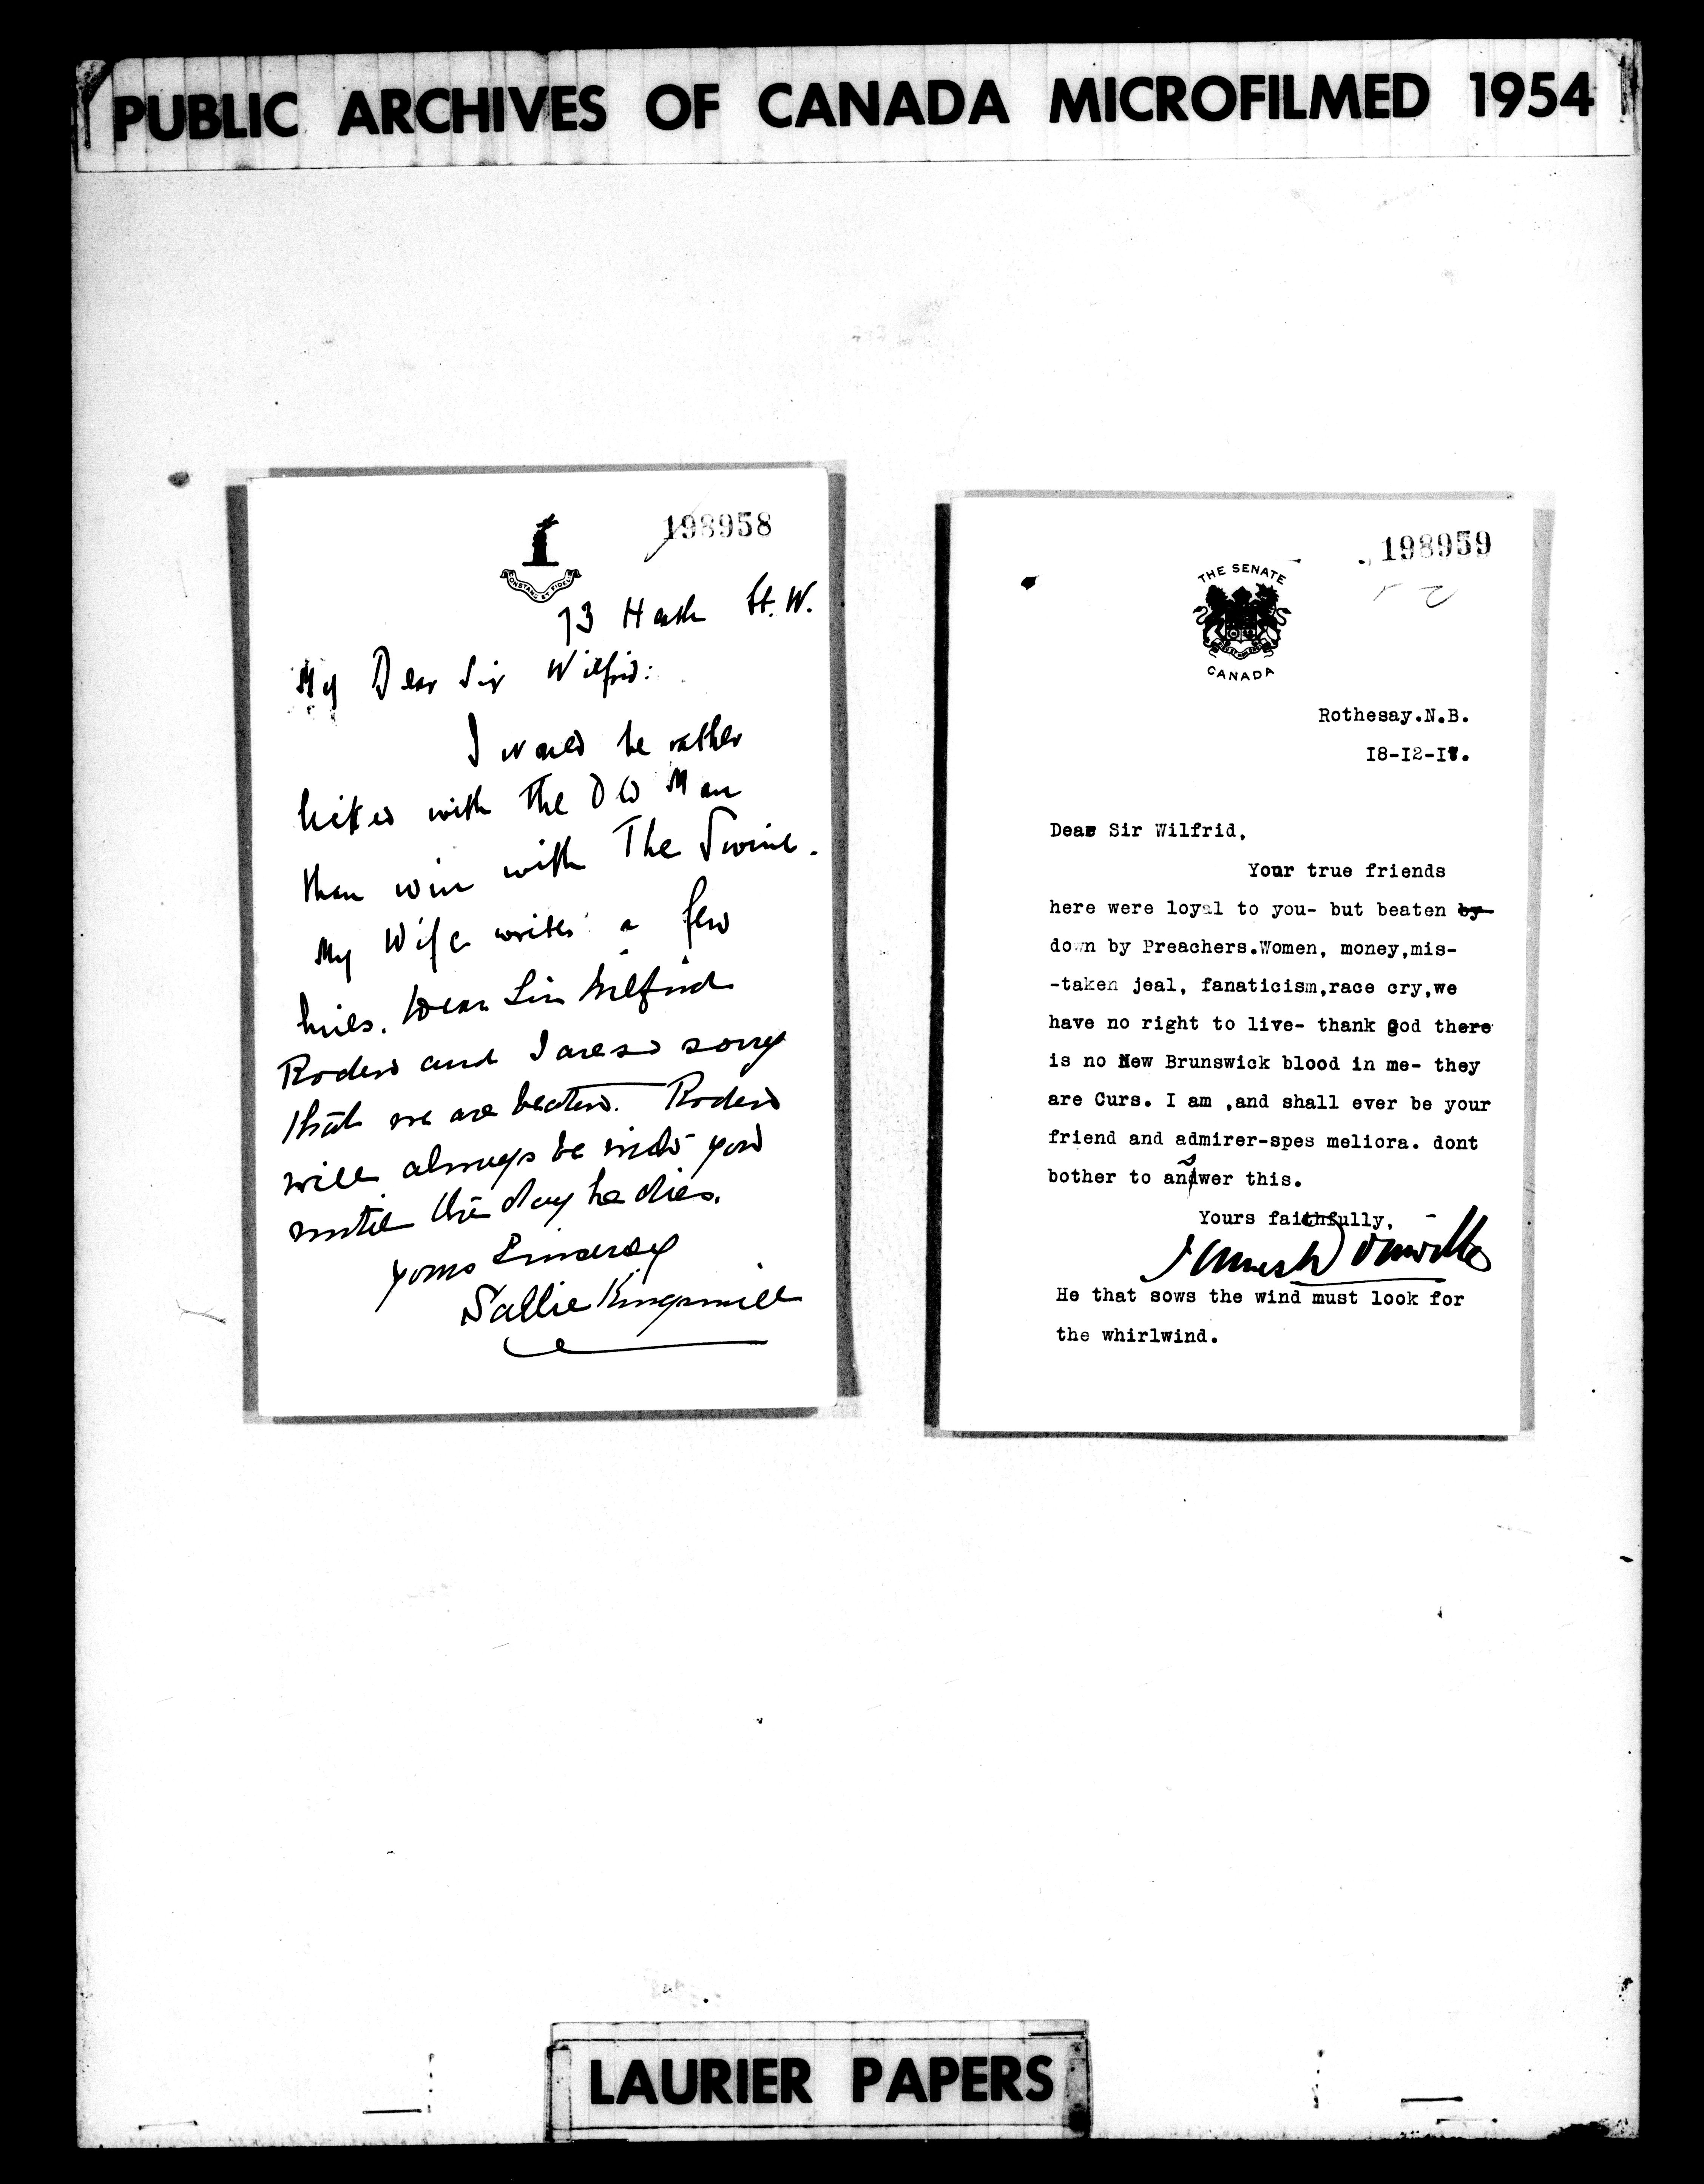 PUBLIC ARCHIVES OF CANADA MICROFILMED 1954
198958
CONSTANS ET FIDELIS
73 St. W.
My Dear Sir Wilfrid:
I would be rather
licked with The Old Man
than win with The Swine.
My Wife writes a few
lines. Dear Sir Wilfrid
Roden and I are so sorry
that we are beaten. Roden
will always be with you
until the day he dies.
yours Sincerely
Sallie Kingsmill
198959
THE SENATE
CANADA
Rothesay.N.B.
I8-I2-I7.
Dear Sir Wilfrid,
Your true friends
here were loyal to you- but beaten by
down by Preachers.Women, money,mis-
-taken jeal, fanaticism,race cry,we
have no right to live- thank god there
is no New Brunswick blood in me- they
are Curs. I am ,and shall ever be your
friend and admirer-spes meliora. dont
bother to answer this.
Yours faithfully,
James Domville
He that sows the wind must look for
the whirlwind.
LAURIER PAPERS